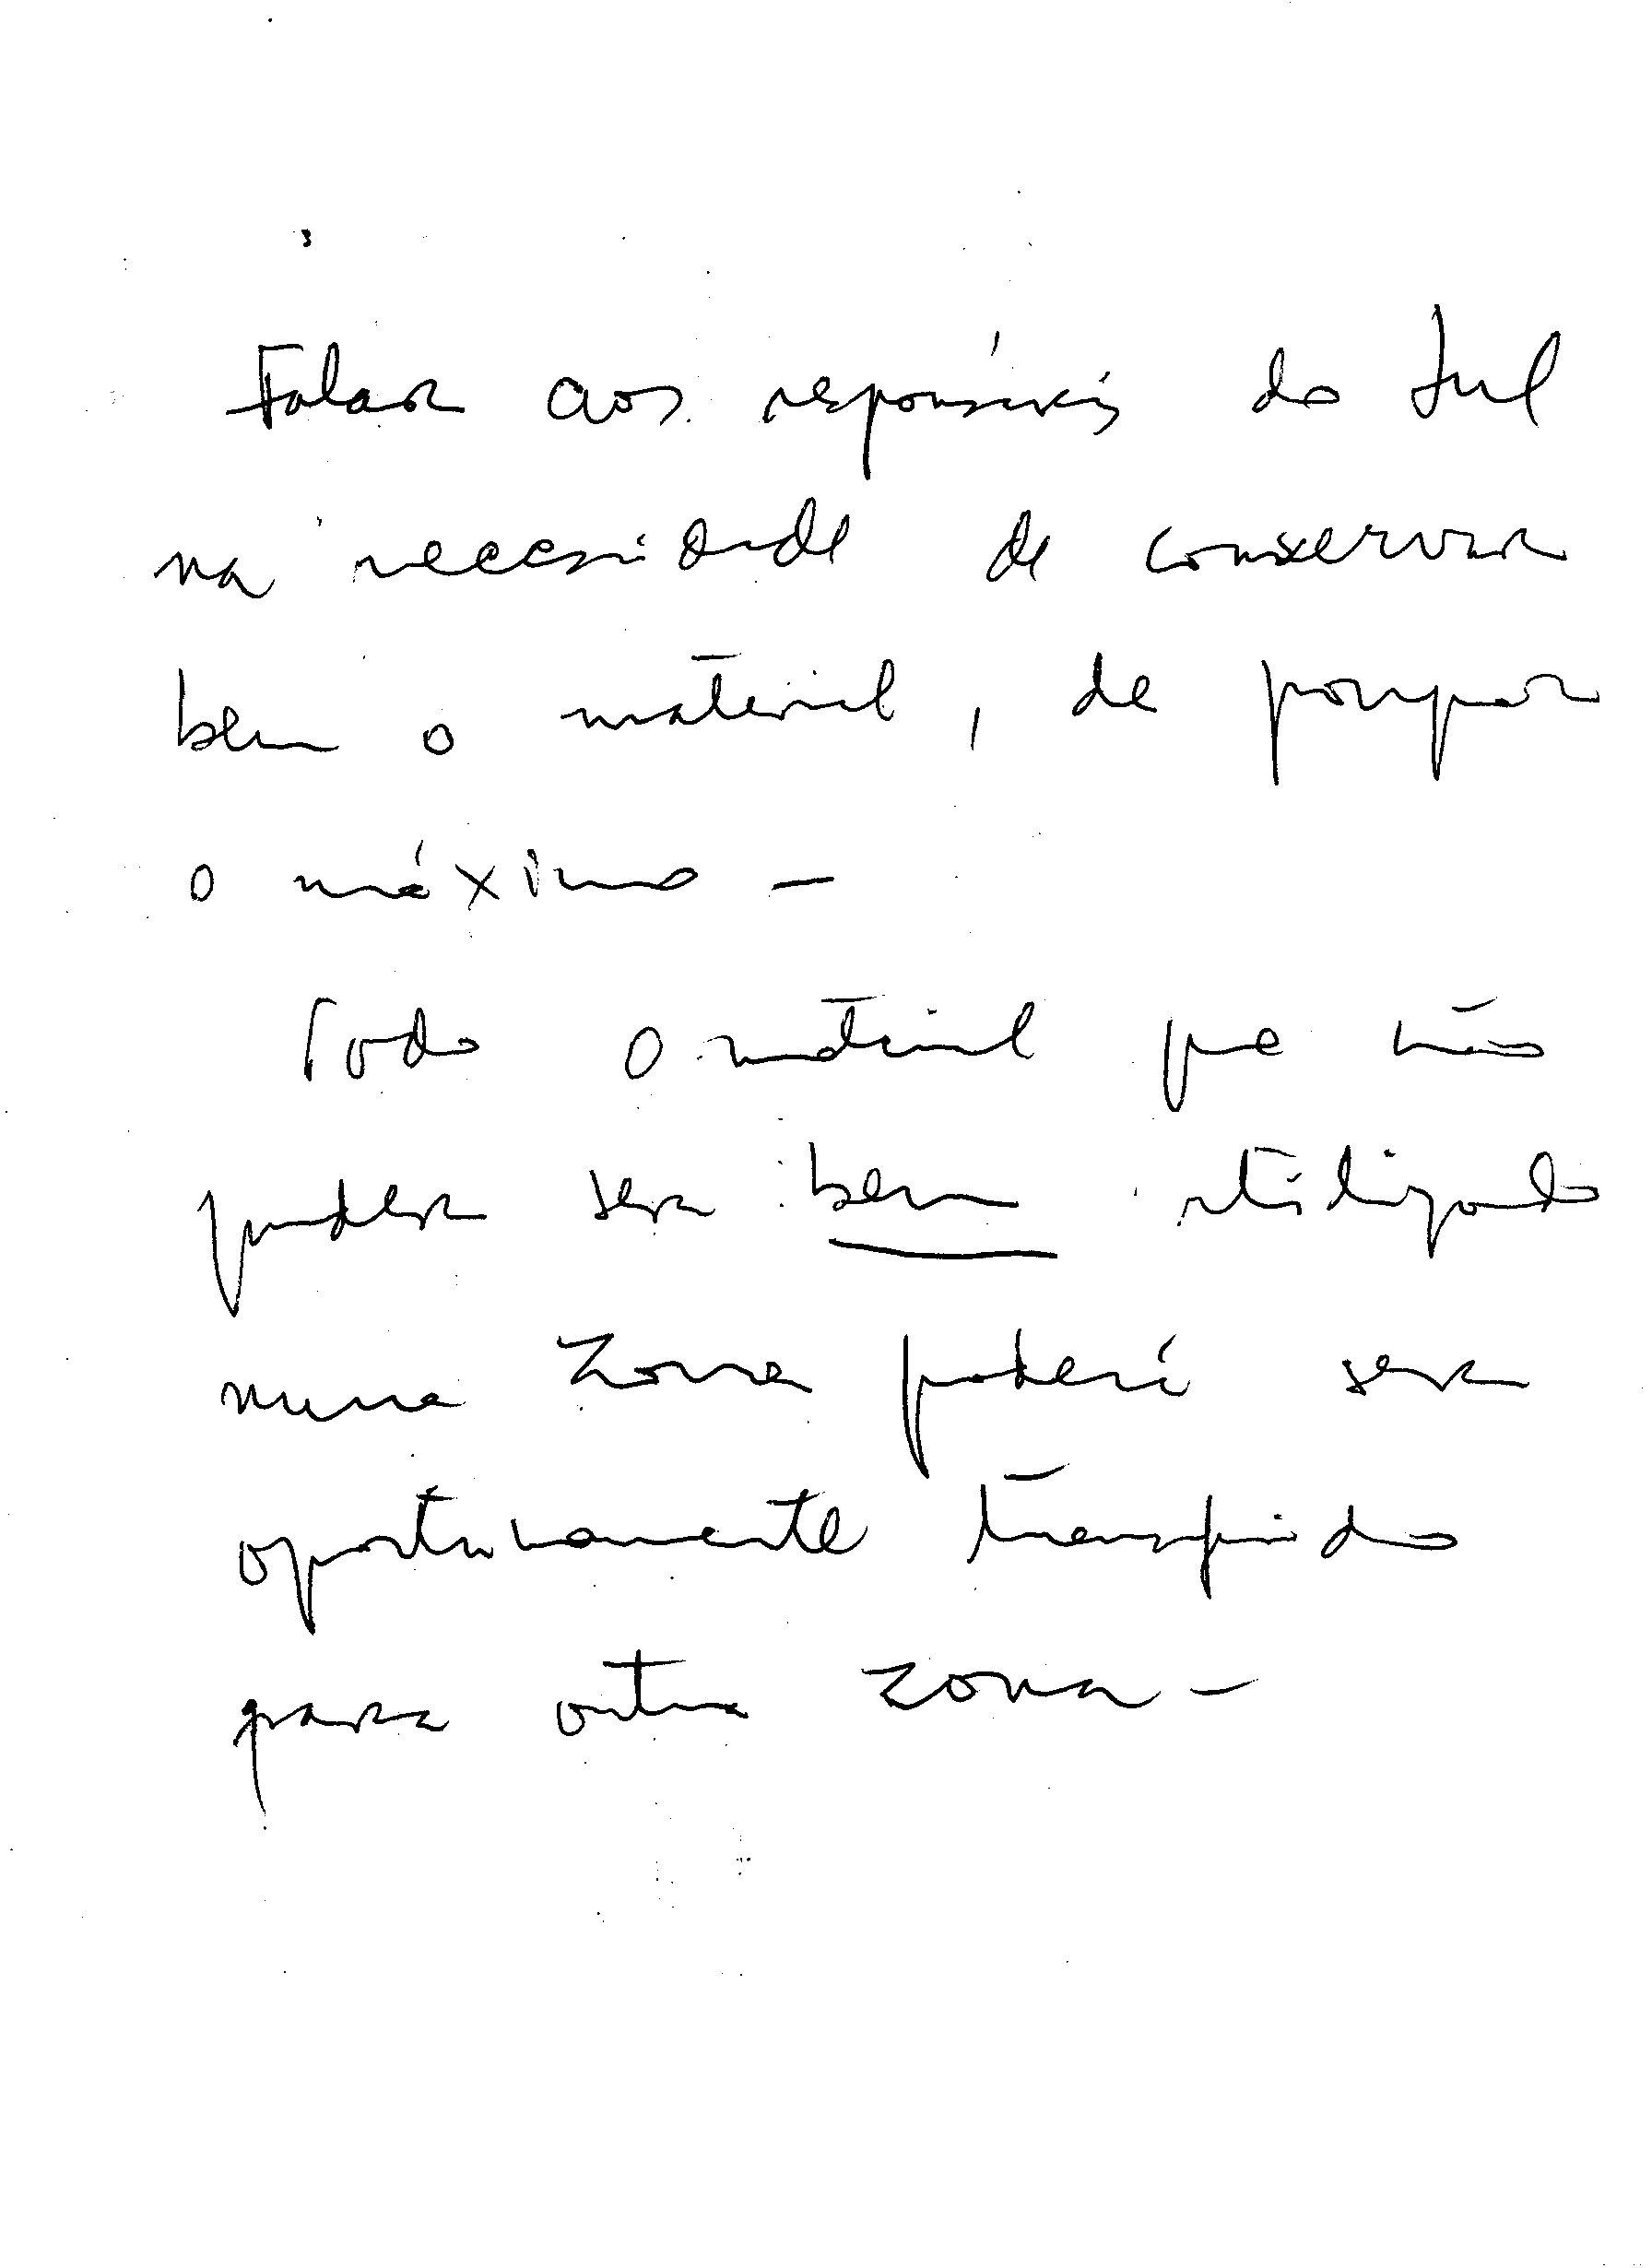 Falar aos responsáveis do Sul
na necessidade de conservar
bem o material, de poupar
o máximo -
Todo o material que não
puder ser bem utilizado
numa zona poderá ser
oportunamente transferido
para outra zona -